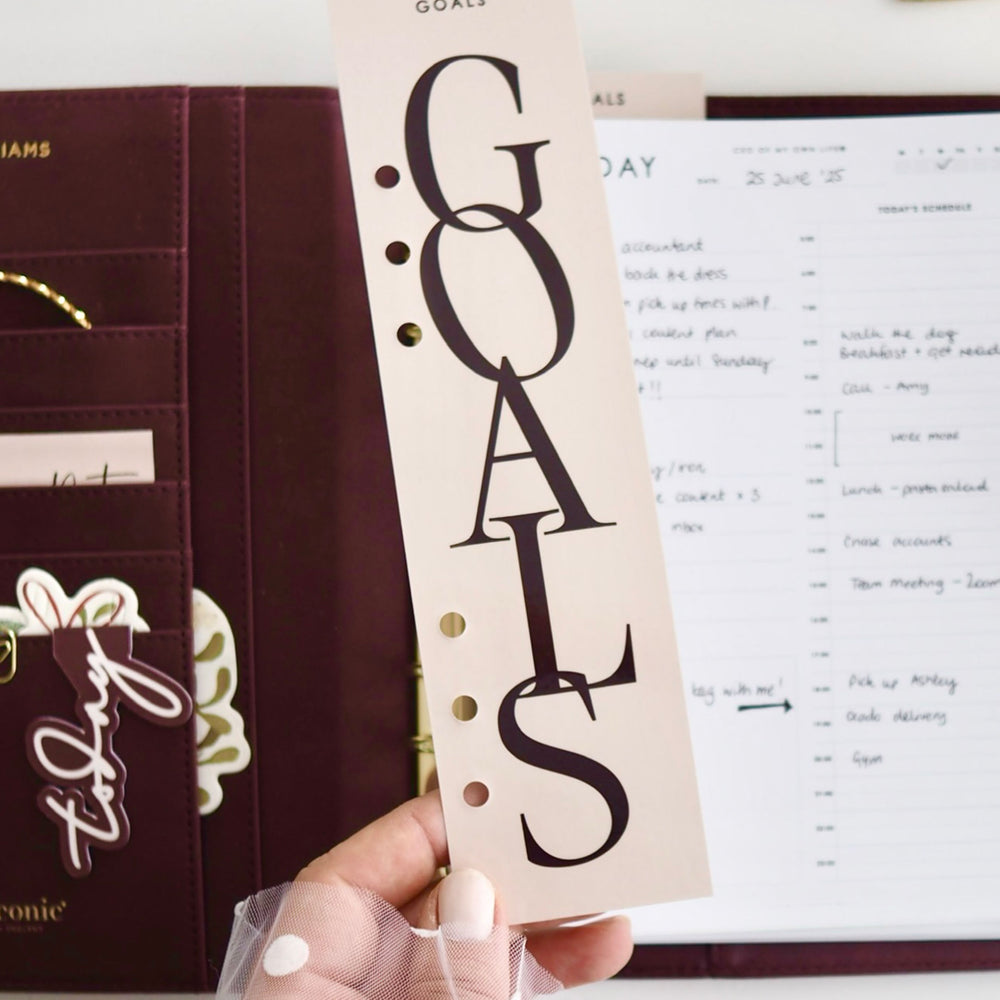 GOALS
GOALS
IAMS
today
conic
ALS
DAY
CEO OF MY OWN LIFE
DATE:
25 June '25
accountant
back the dress
pick up times with P.
content plan
until Sunday
!!
content x 3
inbox
bag with me!
TODAY'S SCHEDULE
Walk the dog
Breakfast + get ready
Call - Amy
work mode
Lunch - pasta salad
Chase accounts
Team meeting - Zoom
Pick up Ashley
Ocado delivery
Gym